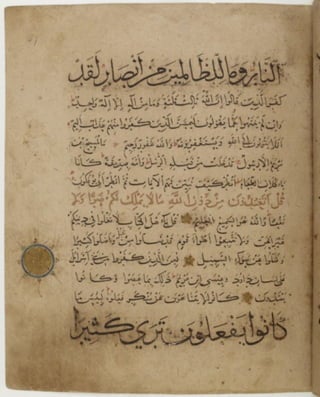 النار وما للظالمين من أنصار لقد
كفر الذين قالوا إن الله ثالث ثلثة وما من إله إلا إله واحد
وإن لم ينتهوا عما يقولون ليمسن الذين كفروا منهم عذاب أليم
أفلا يتوبون إلى الله ويستغفرونه والله غفور رحيم ما المسيح ابن
مريم إلا رسول قد خلت من قبله الرسل وأمه صديقة كانا
يأكلان الطعام انظر كيف نبين لهم الآيات ثم انظر أنى يؤفكون
قل أتعبدون من دون الله ما لا يملك لكم ضرا ولا
نفعا والله هو السميع العليم قل يا أهل الكتاب لا تغلوا في دينكم
غير الحق ولا تتبعوا أهواء قوم قد ضلوا من قبل وأضلوا كثيرا
وضلوا عن سواء السبيل لعن الذين كفروا من بني إسرائيل
على لسان داود وعيسى ابن مريم ذلك بما عصوا وكانوا
يعتدون كانوا لا يتناهون عن منكر فعلوه لبئس ما
كانوا يفعلون ترى كثيرا